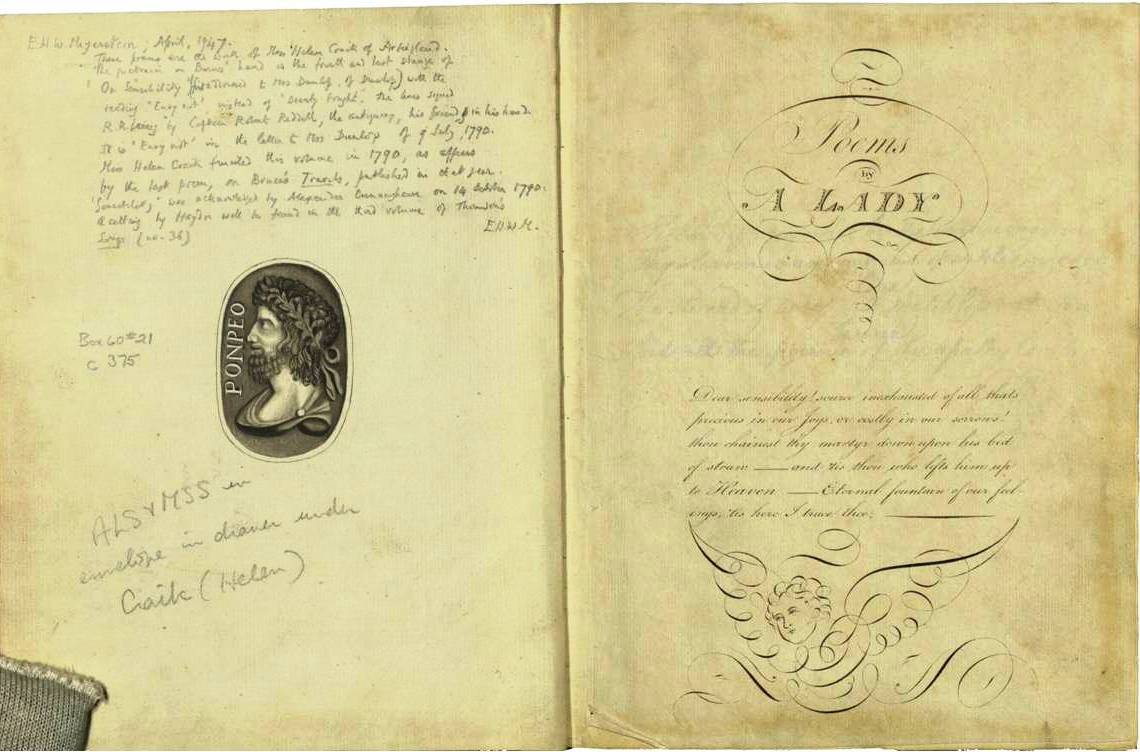 E.H.W. Meyerstein, April, 1947.
These poems are the work of Miss Helen Craik of Arbigland.
The quatrain in Burns' hand is the fourth and last stanza of
On Sensibility (fist addressed to Mrs Dunlop, of Dunlop) with the
reading "Envy not" instead of "Dearly bought". The lines signed
by Captain Robert Riddell, the antiquary, his friend, in his hand.
It is "Envy not" in the letter to Mrs Dunlop of 9 July, 1790.
Miss Helen Craik finished this volume in 1790, as appears
by the last poem, on Bruce's Travels, published in that year.
"Sensibility" was acknowledged by Alexander Cunningham on 14 October 1790.
A setting by Haydn will be found in the third volume of Thomson's
Songs (no. 36)
E.H.W.M.
PONPEO
Box 60 #21
c 375
ALS & MSS in
envelope in drawer under
Craik (Helen)
Poems
by
A LADY
Dear sensibility! source inexhausted of all thats
precious in our Joys, or costly in our sorrows!
thou chainest thy martyr down upon his bed
of straw — and 'tis thou who lifts him up
to Heaven — Eternal fountain of our feel-
ings, 'tis here I trace thee;